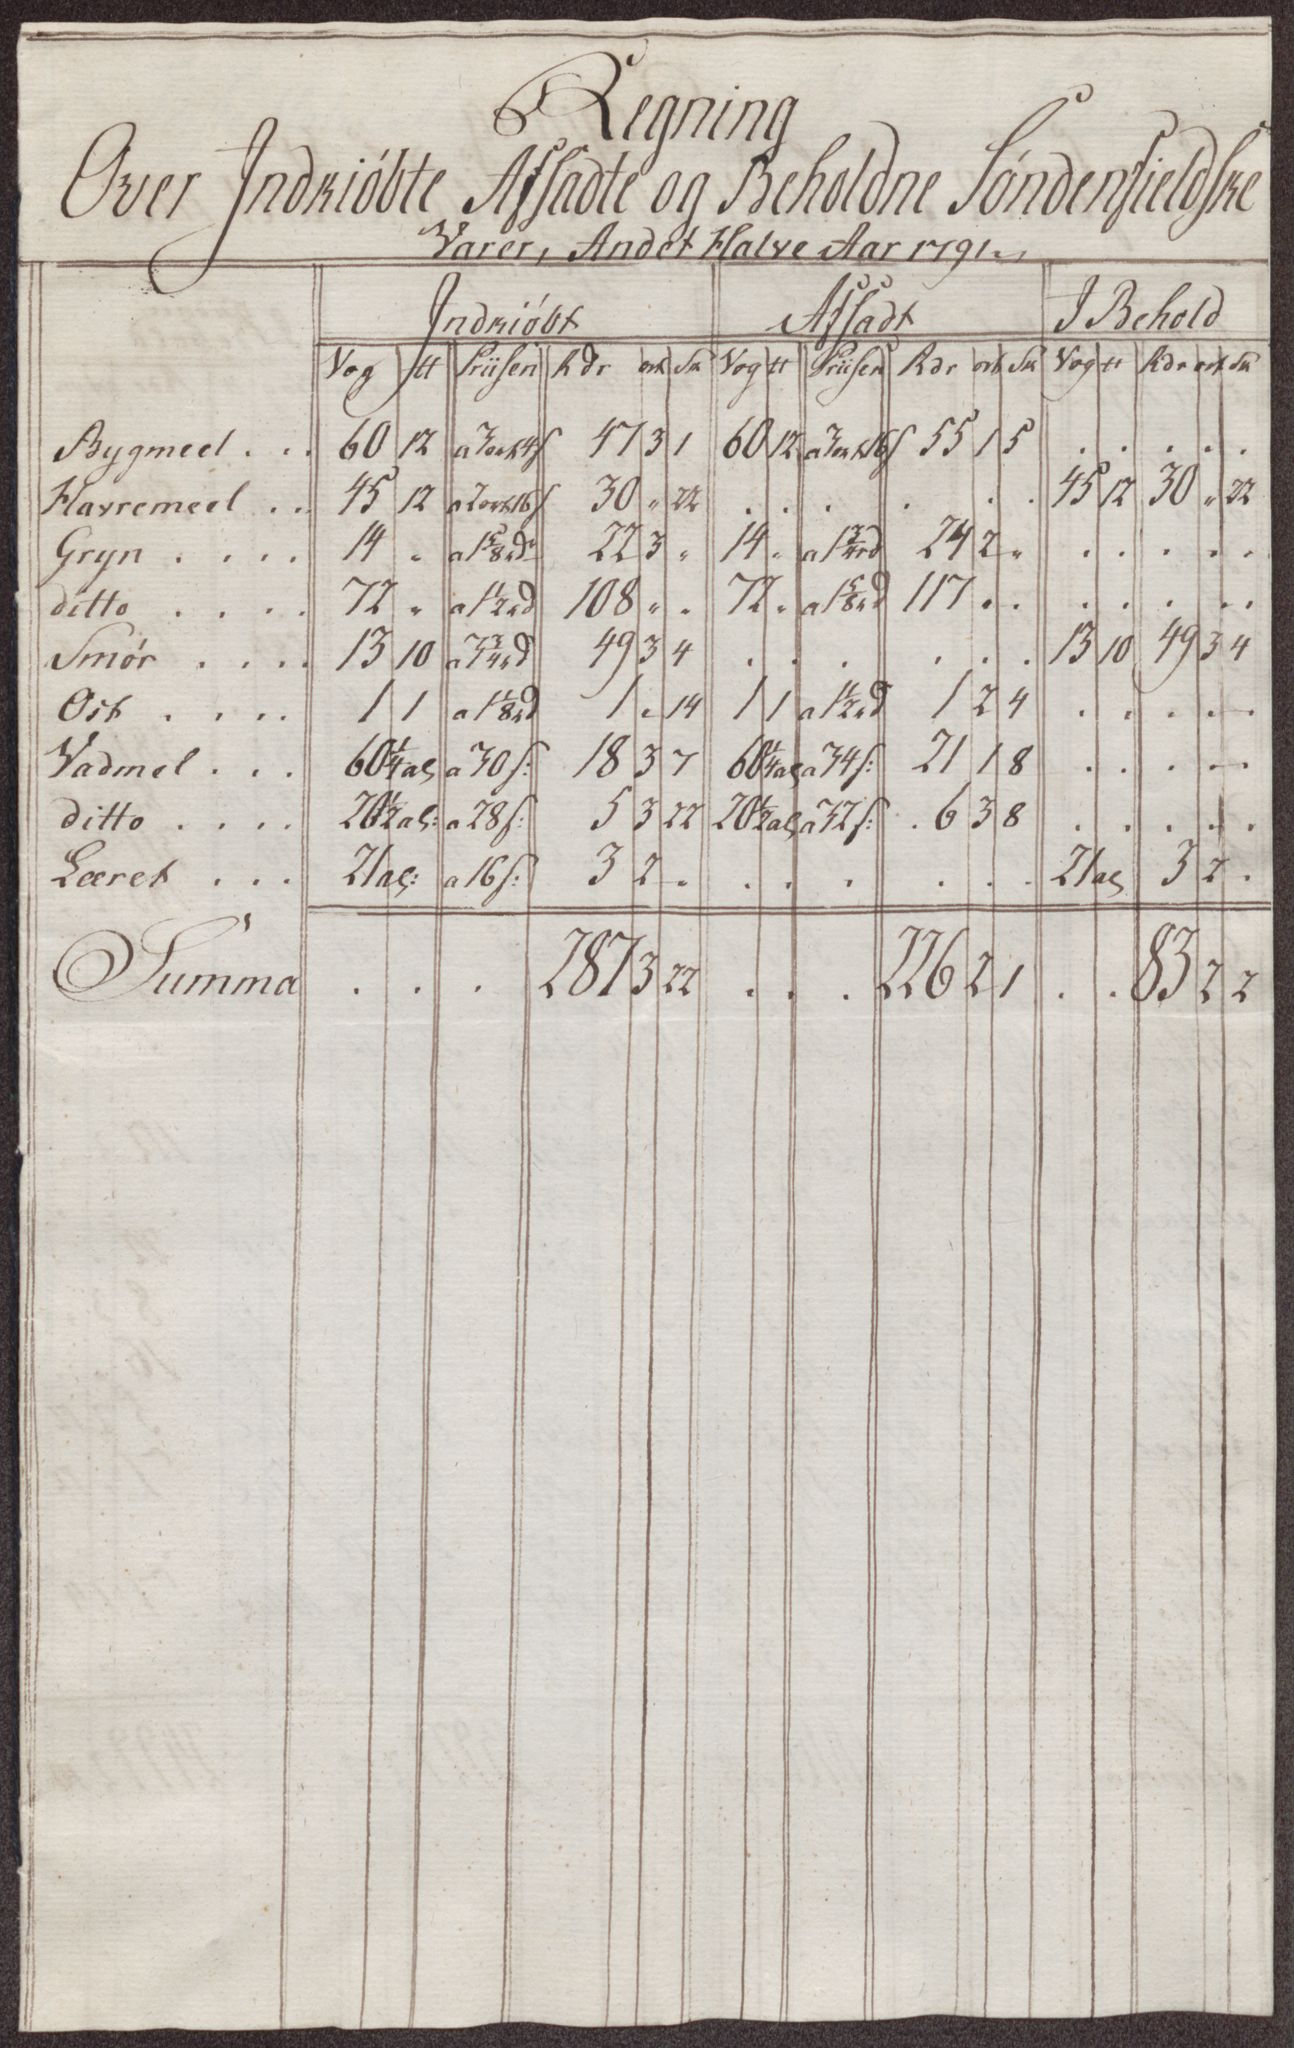 Regning
Over Indkiöbte Afsadte og Beholdne Söndenfieldske
Varer, Andet Halve Aar 1791
Indkiöbt Afsadt I Behold
Vog tt Priisen Rdr ort Sk Vog tt Priisen Rdr ort Sk Vog tt Rdr ort Sk
Bygmeel . . . 60 12 a 3 ort 4 s 47 3 1 60 12 a 3 ort 16 s 55 1 5 . . . . .
Havremeel . . 45 12 a 2 ort 16 s 30 " 22 . . . . . . 45 12 30 " 22
Gryn . . . . 14 " a 1 5/8 rd 22 3 " 14 " a 1 3/4 rd 24 2 " . . . . .
ditto . . . . 72 " a 1 1/2 rd 108 " . 72 " a 1 5/8 rd 117 . . . . . . .
Smör . . . . 13 10 a 3 3/4 rd 49 3 4 . . . . . . 13 10 49 3 4
Ost . . . . 1 1 a 1 1/8 rd 1 " 14 1 1 a 1 1/2 rd 1 2 4 . . . . .
Vadmel . . . 60 1/4 al a 30 s: 18 3 7 60 1/4 al a 34 s: 21 1 8 . . . . .
ditto . . . . 20 1/2 al: a 28 s: 5 3 22 20 1/2 al a 32 s: . 6 3 8 . . . . .
Læret . . . 21 al: a 16 s: 3 2 . . . . . . . 21 al 3 2 .
Summa . . . 287 3 22 . . . 226 2 1 . . 83 2 2